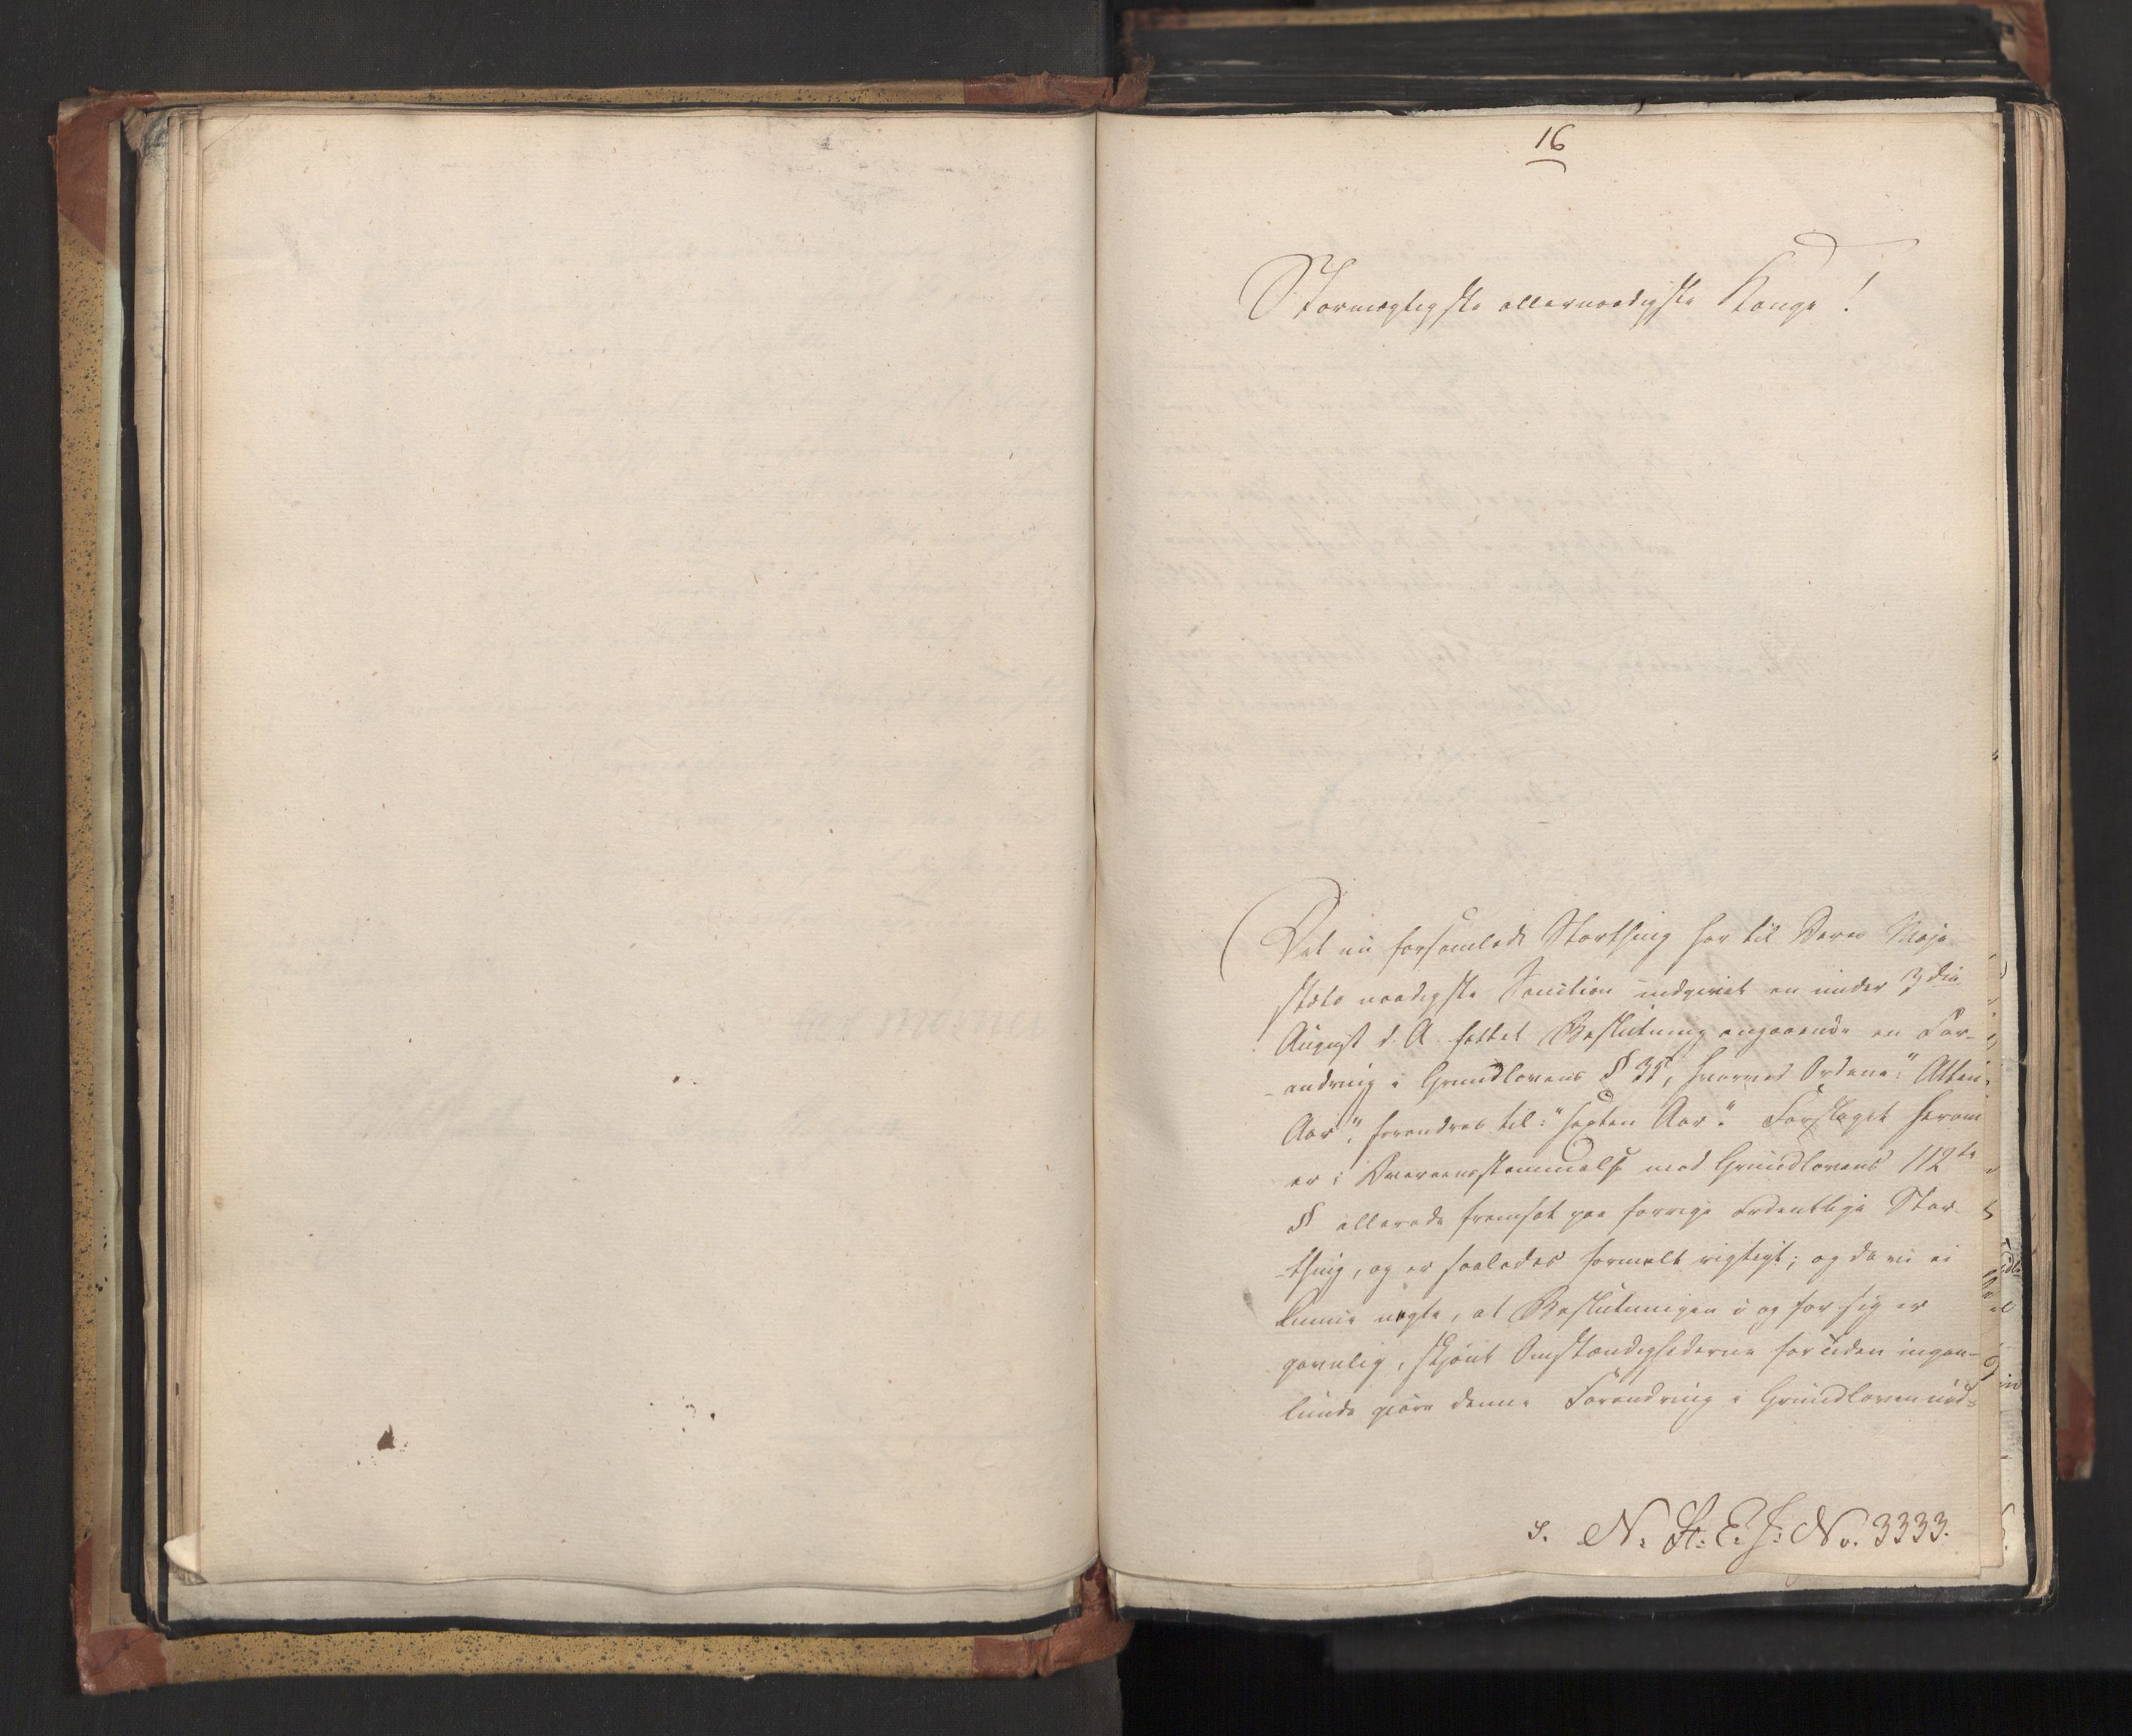 16
Stormægtigste allernaadigste Konge!
Det nu forsamlede Storthing har til Deres Maje-
stæts naadigste Sanction indgivet en under 3die
August d. A. fattet Beslutning angaaende en For-
andring i Grundlovens § 35, hvorved Ordene: "Atten
Aar", forandres til: "sexten Aar". Forslaget herom
er i Overeensstemmelse med Grundlovens 112te
§ allerede fremsat paa forrige ordentlige Stor-
-thing, og er saaledes formelt rigtigt; og da vi ei
kunne negte, at Beslutningen i og for sig er
gavnlig, skjønt Omstændighederne for tiden ingen-
lunde gjøre denne Forandring i Grundloven nød-
s. N. St. E. J. No. 3333.